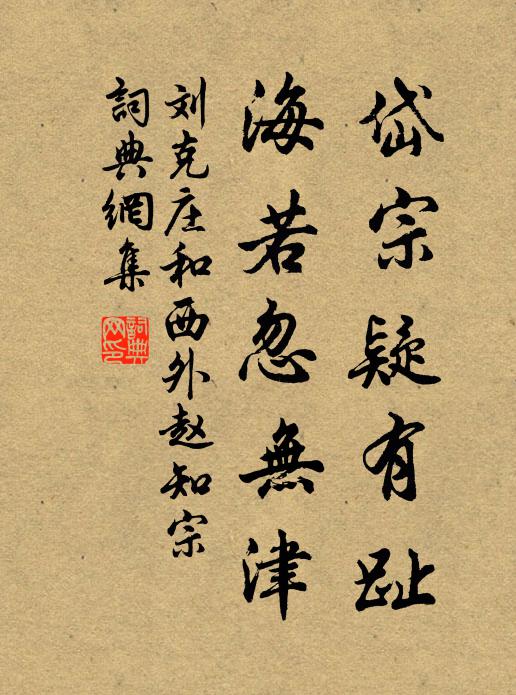 岱宗疑有趾
海若忽無津
刘克庄和西外赵知宗
詞典網集
詞典网印